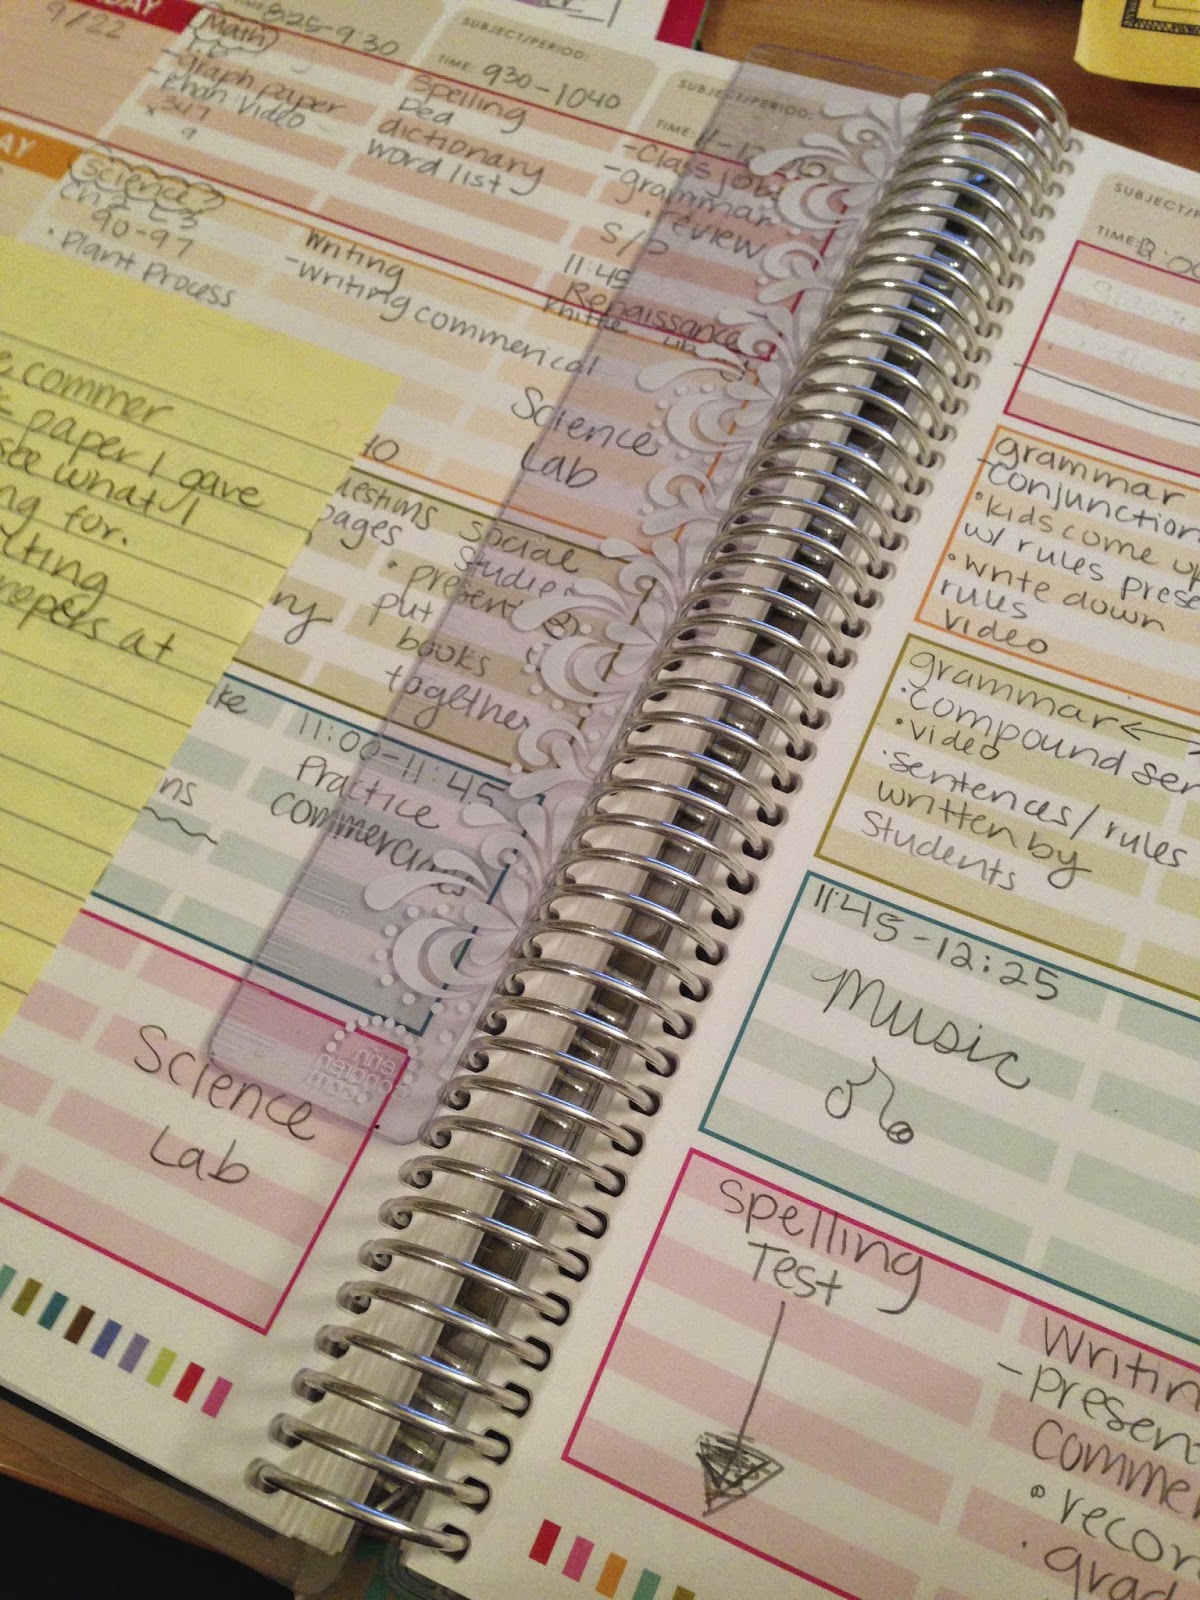 DAY
9/22
Math
TIME: 8:25-9:30
- graph paper
- Khan video
x 347
9
SUBJECT/PERIOD:
TIME: 930-1040
Spelling
dictionary
word list
SUBJECT/PERIOD:
TIME:
- Class job
- grammar
• review
S/D
11:45
Renaissance
AY
Science
90-97
• Plant Process
Writing
- writing commerical
Science
Lab
commer
paper I gave
see what
ng for.
at
pages
Social
Studies
• present
put
books
together
11:00-11:45
Practice
commercials
erin
condren
.com
Science
Lab
SUBJECT/
TIME:
grammar
- conjunction
• kids come up
w/ rules prese
• write down
rules
video
grammar
• compound sen
• video
• sentences/rules
written by
Students
11:45-12:25
Music
Spelling
Test
Writin
- presen
Comme
• recor
• grad